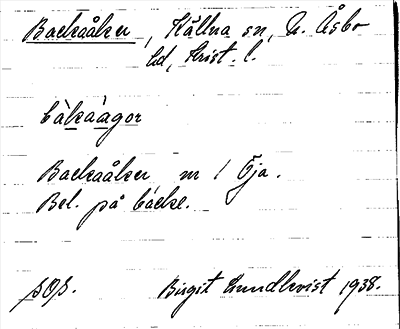 Backaåker, Källna sn, N. Åsbo
hd, Krist. l.
bàkaàgor
Backaåker nr 1 Öja.
Bel. på backe.
sOs.
Birgit Lundkvist 1938.